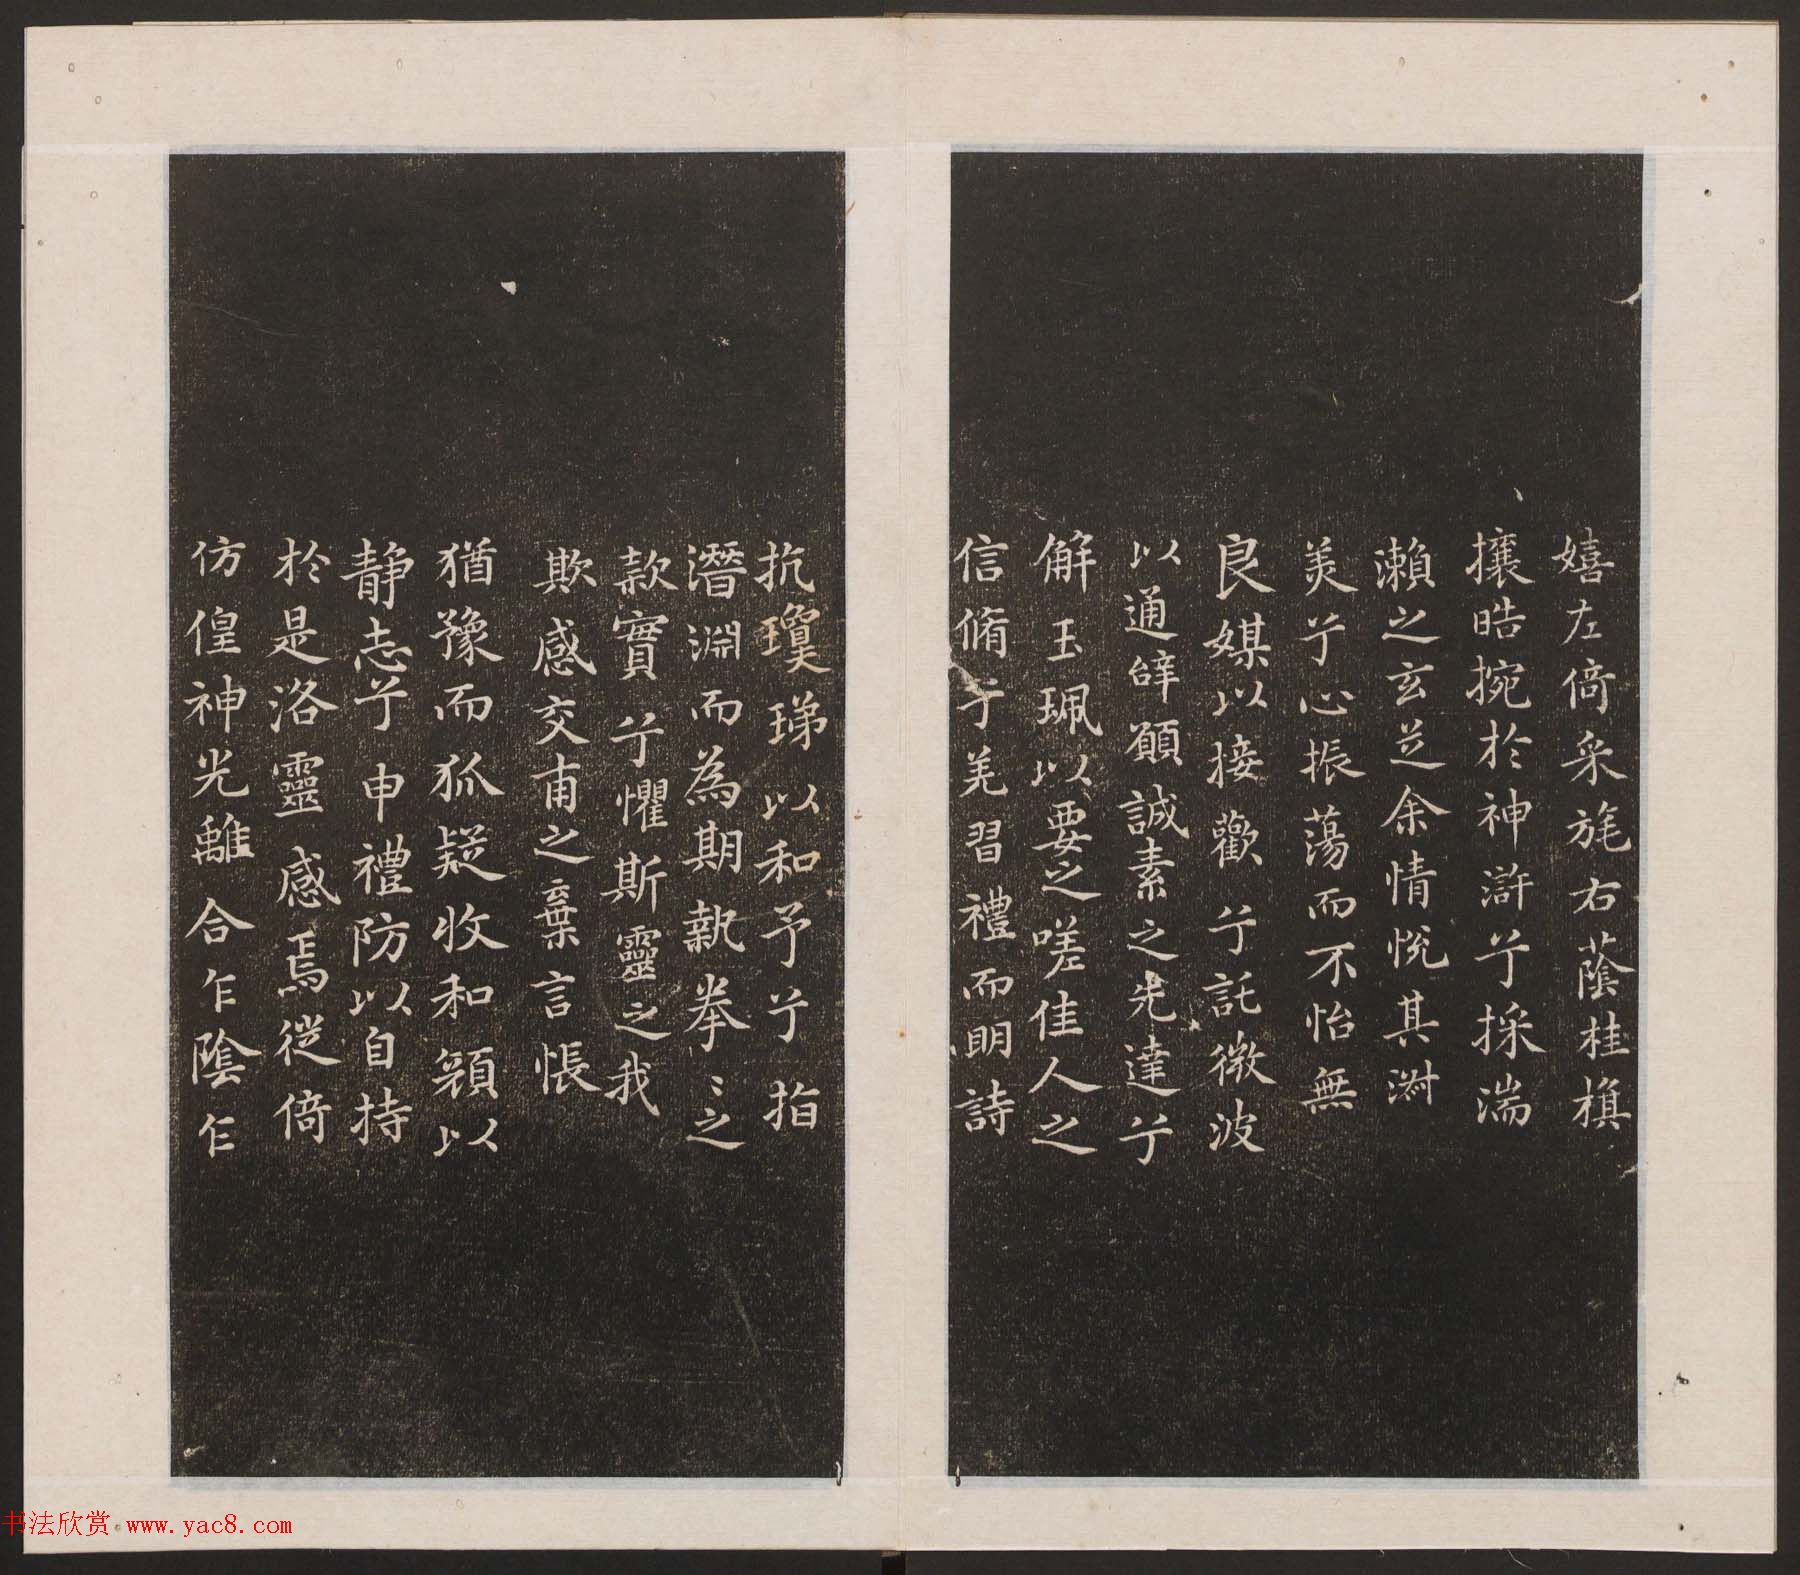 嬉左倚采旄右蔭桂旗
攘皓捥於神滸兮採湍
瀨之玄芝余情悅其淑
美兮心振蕩而不怡無
良媒以接歡兮託微波
以通辭願誠素之先達兮
解玉珮以要之嗟佳人之
信脩兮羌習禮而明詩
抗瓊珶以和予兮指
潛淵而為期執拳〻之
款實兮懼斯靈之我
欺感交甫之棄言悵
猶豫而狐疑收和顏以
静志兮申禮防以自持
於是洛靈感焉從倚
仿偟神光離合乍陰乍
书法欣赏 www.yac8.com